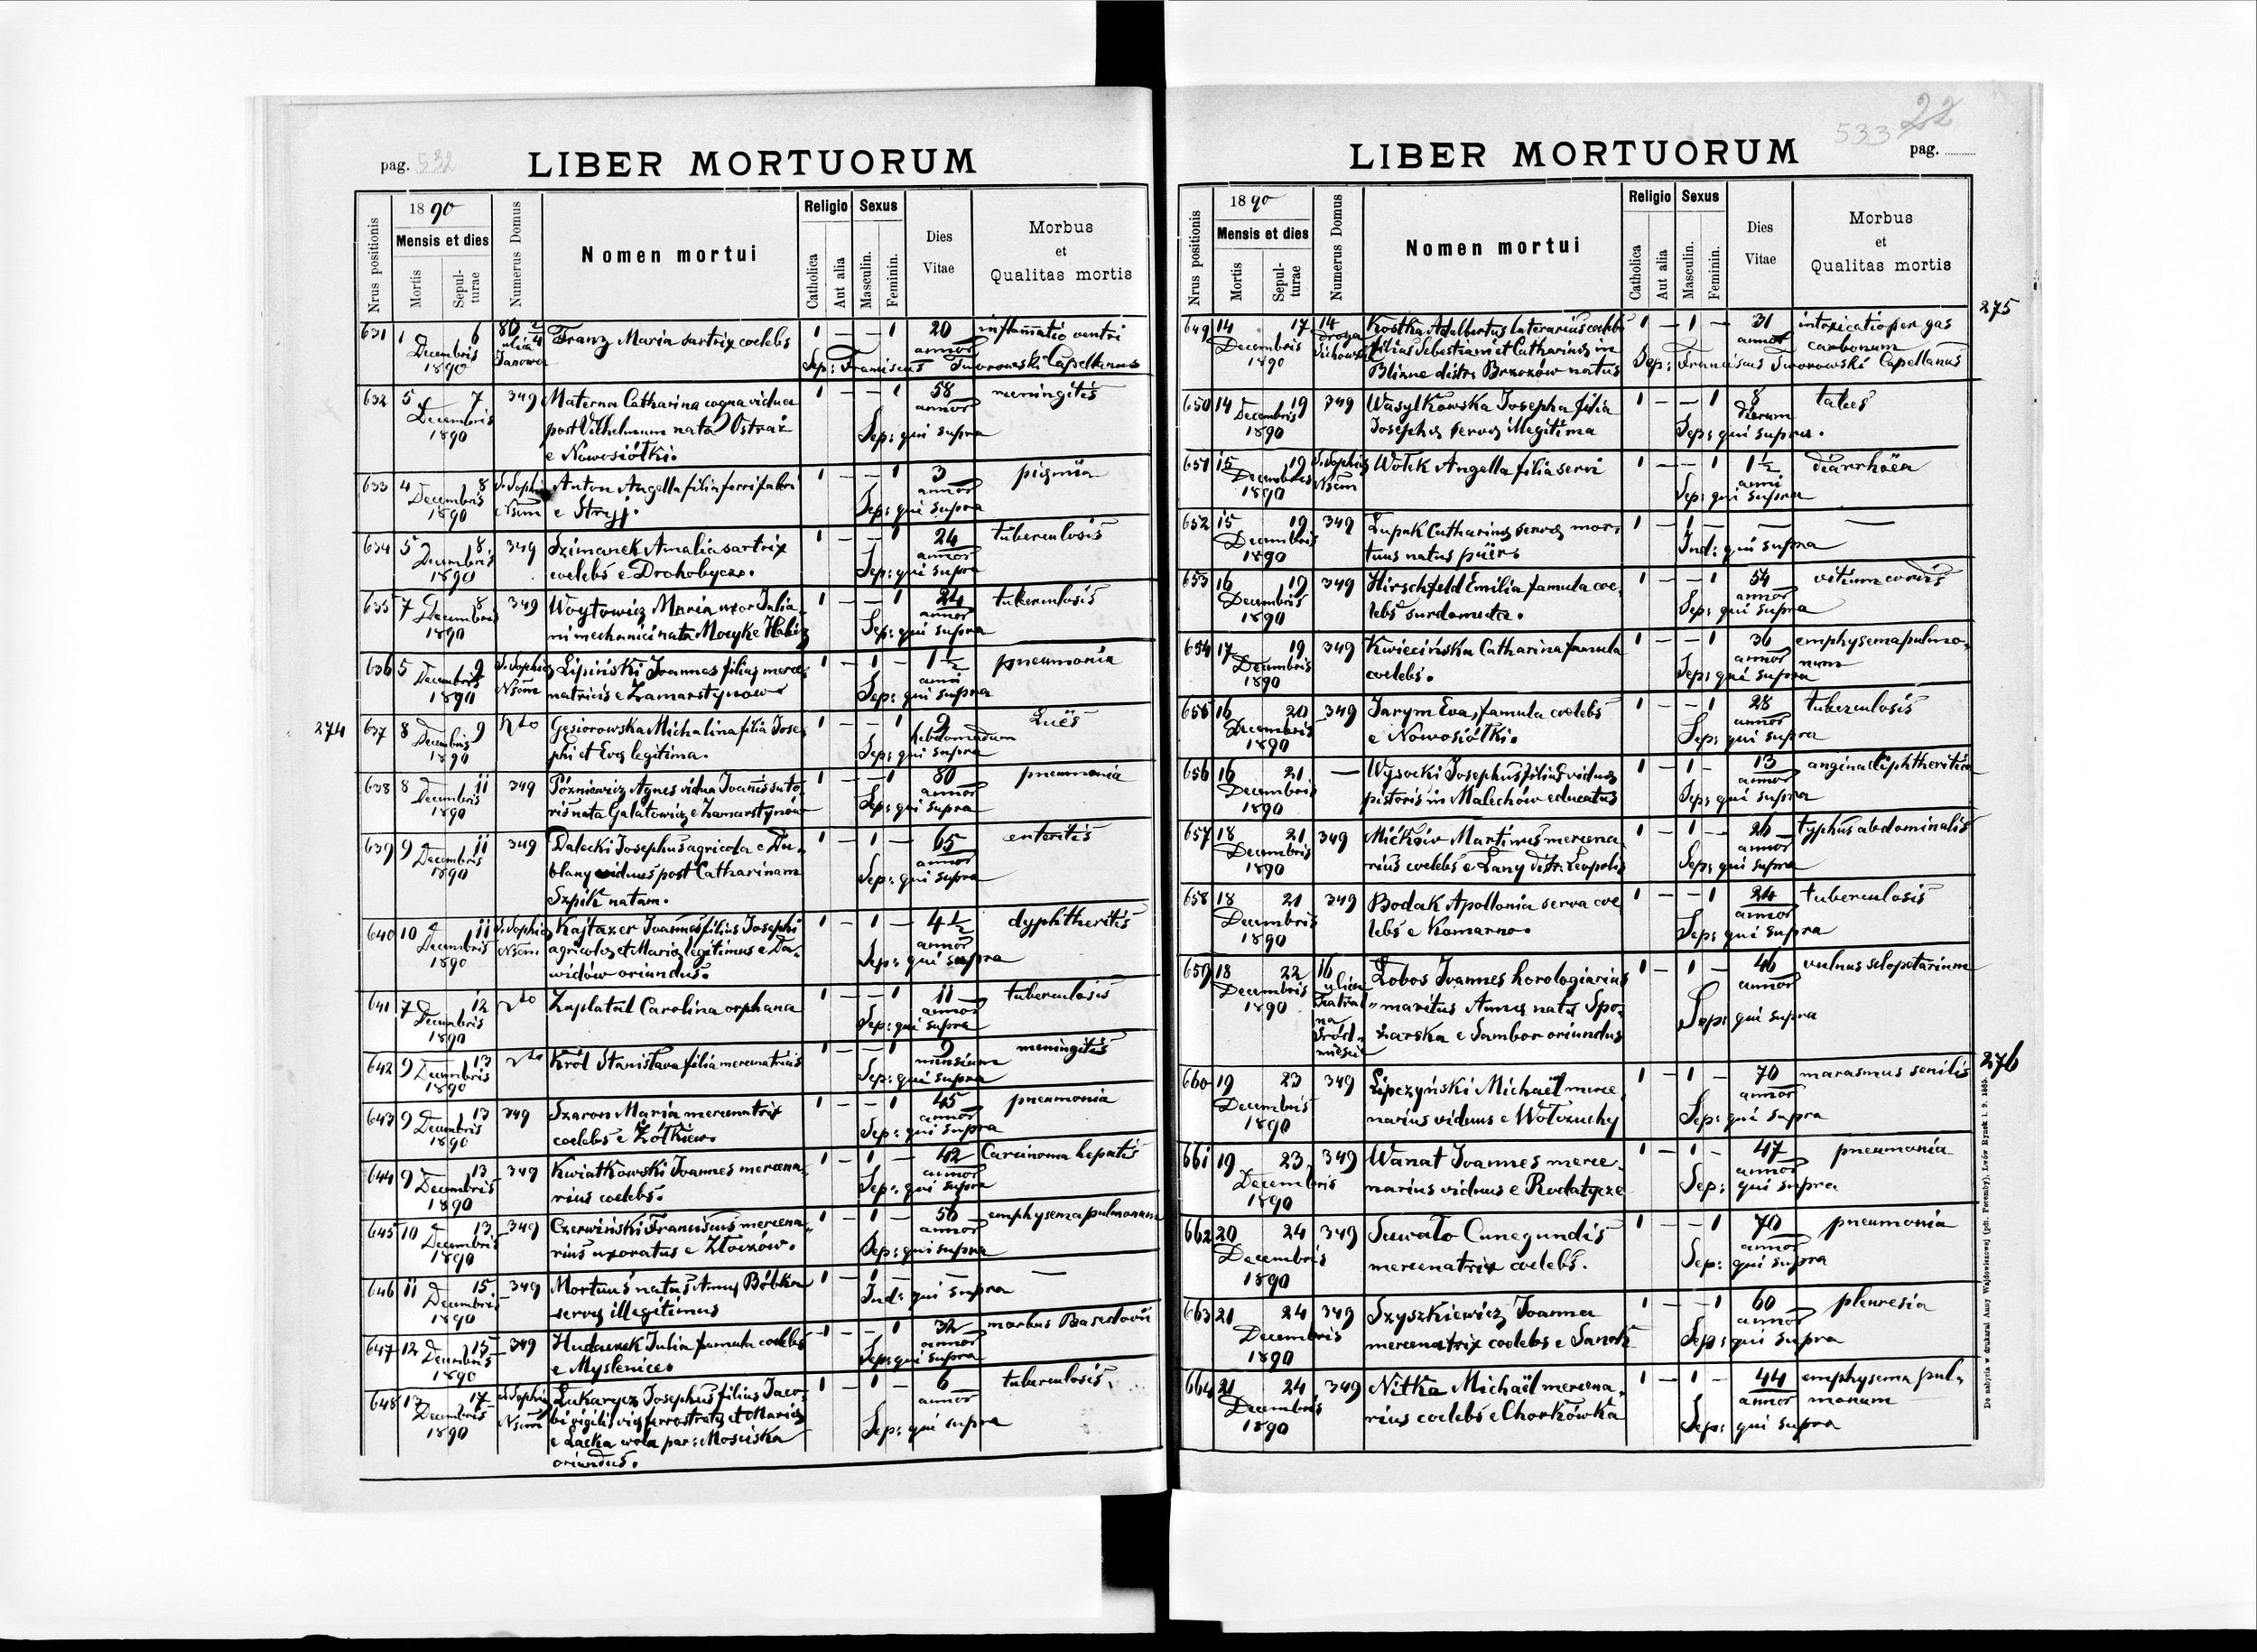 pag. 532
LIBER MORTUORUM
Nrus positionis
1890
Mensis et dies
Mortis
Sepulturae
Numerus Domus
Nomen mortui
Religio
Catholica
Aut alia
Sexus
Masculin.
Feminin.
Dies Vitae
Morbus et Qualitas mortis
631 1 6 Decembris 1890 ulica Janowa Franz Maria sartrix coelebs 1 — — 1 20 annor inflam̄atio ventri
Sep: Franciscus Tworowski Capellanus
632 5 7 Decembris 1890 349 Materna Catharina vidua 1 — — 1 58 annor meningitis
post Vilhelmum nata Ostraż Sep: qui supra
e Nowosiółki.
633 4 8 Decembris 1890 S. Sophia Anton Angella filia ferri fabri 1 — — 1 3 annor
e Stryj. Sep: qui supra
634 5 8 Decembris 1890 349 Szimanek Amalia sartrix 1 — — 1 24 annor tuberculosis
coelebs e Drohobycz. Sep: qui supra
635 7 8 Decembris 1890 349 Woytowicz Maria uxor Julia- 1 — — 1 24 annor tuberculosis
ni mechanici nata Sep: qui supra
636 5 9 Decembris 1890 S. Sophia Lipiński Joannes filius merce- 1 — 1 — 1½ anni pneumonia
natricis e Zamarstynow Sep: qui supra
274
637 8 9 Decembris 1890 Gęsiorowska Michalina filia Jose- 1 — — 1 9 hebdomadum Luës
phi et Evę legitima. Sep: qui supra
638 8 11 Decembris 1890 349 Późniewicz Agnes vidua Joañis suto- 1 — — 1 80 annor pneumonia
ris nata Galatowicz e Zamarstynów Sep: qui supra
639 9 11 Decembris 1890 349 Dalecki Josephus agricola e Du- 1 — 1 — 65 annor enteritis
blany viduus post Catharinam Sep: qui supra
Szpik natam.
640 10 11 Decembris 1890 S. Sophia Kajtazer Joannes filius Josephi 1 — 1 — 4½ annor dyphtheritis
agricolę et Marię legitimus e Da- Sep: qui supra
widów oriundus.
641 7 12 Decembris 1890 Zaplatal Carolina orphana 1 — — 1 11 annor tuberculosis
Sep: qui supra
642 9 13 Decembris 1890 Król Stanisława filia mercenatricis 1 — — 1 9 mensium meningitis
Sep: qui supra
643 9 13 Decembris 1890 349 Szaron Maria mercenatrix 1 — — 1 45 annor pneumonia
coelebs e Żółkiew. Sep: qui supra
644 9 13 Decembris 1890 349 Kwiatkowski Joannes mercena- 1 — 1 — 42 annor Carcinoma hepatis
rius coelebs. Sep: qui supra
645 10 13 Decembris 1890 349 Czerwiński Franciscus mercena- 1 — 1 — 56 annor emphysema pulmonum
rius uxoratus e Złoczów. Sep: qui supra
646 11 15 Decembris 1890 349 Mortuus natus Annę Bóbka 1 — 1 — — —
servę illegitimus Ind: qui supra
647 12 15 Decembris 1890 349 Hudaczek Julia famula coelebs 1 — — 1 32 annor morbus Basedovii
e Myslenice. Sep: qui supra
648 13 17 Decembris 1890 S. Sophia Lukarycz Josephus filius Jaco- 1 — 1 — 6 annor tuberculosis
bi vigilis vię ferrostratę et Marię Sep: qui supra
e Lacka wola par: Mosciska
oriundus.
533 22
LIBER MORTUORUM
pag.
Nrus positionis
1890
Mensis et dies
Mortis
Sepulturae
Numerus Domus
Nomen mortui
Religio
Catholica
Aut alia
Sexus
Masculin.
Feminin.
Dies Vitae
Morbus et Qualitas mortis
275
649 14 17 Decembris 1890 14 Droga Kostka Adalbertus laterarius coelebs 1 — 1 — 31 annor intoxicatio per gas
filius Sebastiani et Catharinę in carbonum
Blizne distr: Brzozów natus Sep: Franciscus Tworowski Capellanus
650 14 19 Decembris 1890 349 Wasylkowska Josepha filia 1 — — 1 8 dierum tabes
Josephę servę illegitima Sep: qui supra.
651 15 19 Decembris 1890 S. Sophia Wołek Angella filia servi 1 — — 1 1½ anni diarrhöea
Sep: qui supra
652 15 19 Decembris 1890 349 Łupak Catharinę servę mor- 1 — 1 — — —
tuus natus püer. Ind: qui supra
653 16 19 Decembris 1890 349 Hirschfeld Emilia famula coe- 1 — — 1 54 annor vitium cordis
lebs surdomuta. Sep: qui supra
654 17 19 Decembris 1890 349 Kwiecińska Catharina famula 1 — — 1 36 annor emphysema pulmo-
coelebs. Sep: qui supra num
655 16 20 Decembris 1890 349 Jarym Eva, famula coelebs 1 — — 1 28 annor tuberculosis
e Nowosiółki. Sep: qui supra
656 16 21 Decembris 1890 — Wysocki Josephus filius viduę 1 — 1 — 13 annor angina diphtheritica
pistoris in Malechów educatus Sep: qui supra
657 18 21 Decembris 1890 349 Mićków Martinus mercena- 1 — 1 — 26 annor typhus abdominalis
rius coelebs e Lany distr. Leopolis Sep: qui supra
658 18 21 Decembris 1890 349 Bodak Apollonia serva coe- 1 — — 1 24 annor tuberculosis
lebs e Komarno. Sep: qui supra
659 18 22 Decembris 1890 16 ulica Teatralna Śródmieście Lobos Joannes horologiarius 1 — 1 — 46 annor vulnus sclopetarium
maritus Annę natę Spo- Sep: qui supra
żarska e Sambor oriundus
276
660 19 23 Decembris 1890 349 Lipczyński Michaël merce- 1 — 1 — 70 annor marasmus senilis
narius viduus e Wołczuchy Sep: qui supra
661 19 23 Decembris 1890 349 Wanat Joannes merce- 1 — 1 — 47 annor pneumonia
narius viduus e Rodatycze Sep: qui supra
662 20 24 Decembris 1890 349 Suwało Cunegundis 1 — — 1 70 annor pneumonia
mercenatrix coelebs. Sep: qui supra
663 21 24 Decembris 1890 349 Szyszkiewicz Joanna 1 — — 1 60 annor pleuresia
mercenatrix coelebs e Sanok Sep: qui supra
664 21 24 Decembris 1890 349 Nitka Michaël mercena- 1 — 1 — 44 annor emphysema pul-
rius coelebs e Chorkówka Sep: qui supra monum
De nabycia w drukarni Anny Wajdowiczowej (pdt. Poremby), Lwów Rynek l. 9. 1885.